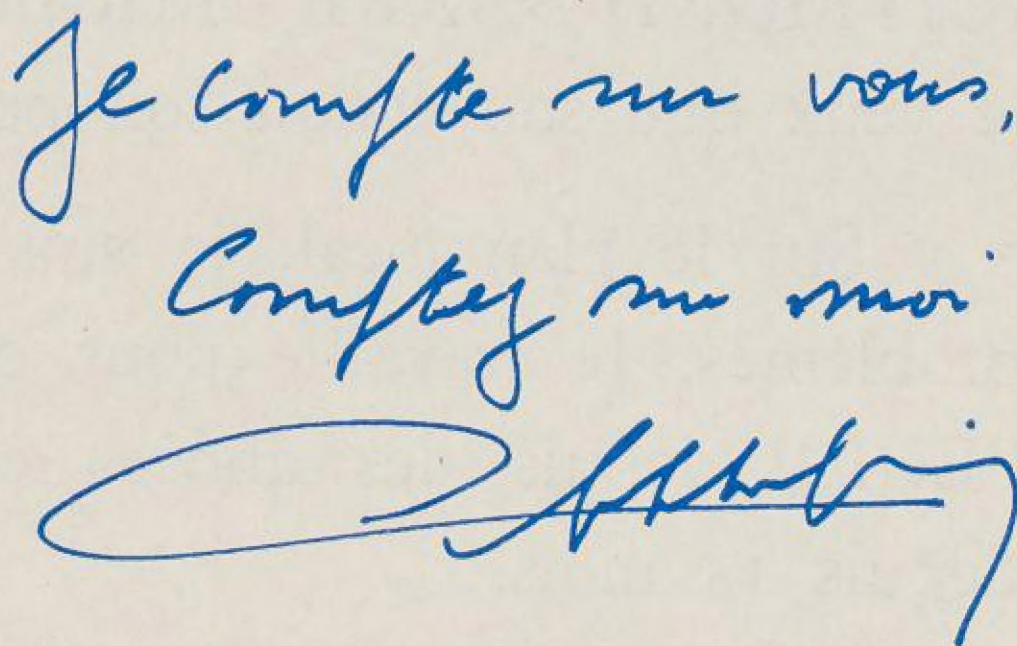 Je compte sur vous,
Comptez sur moi